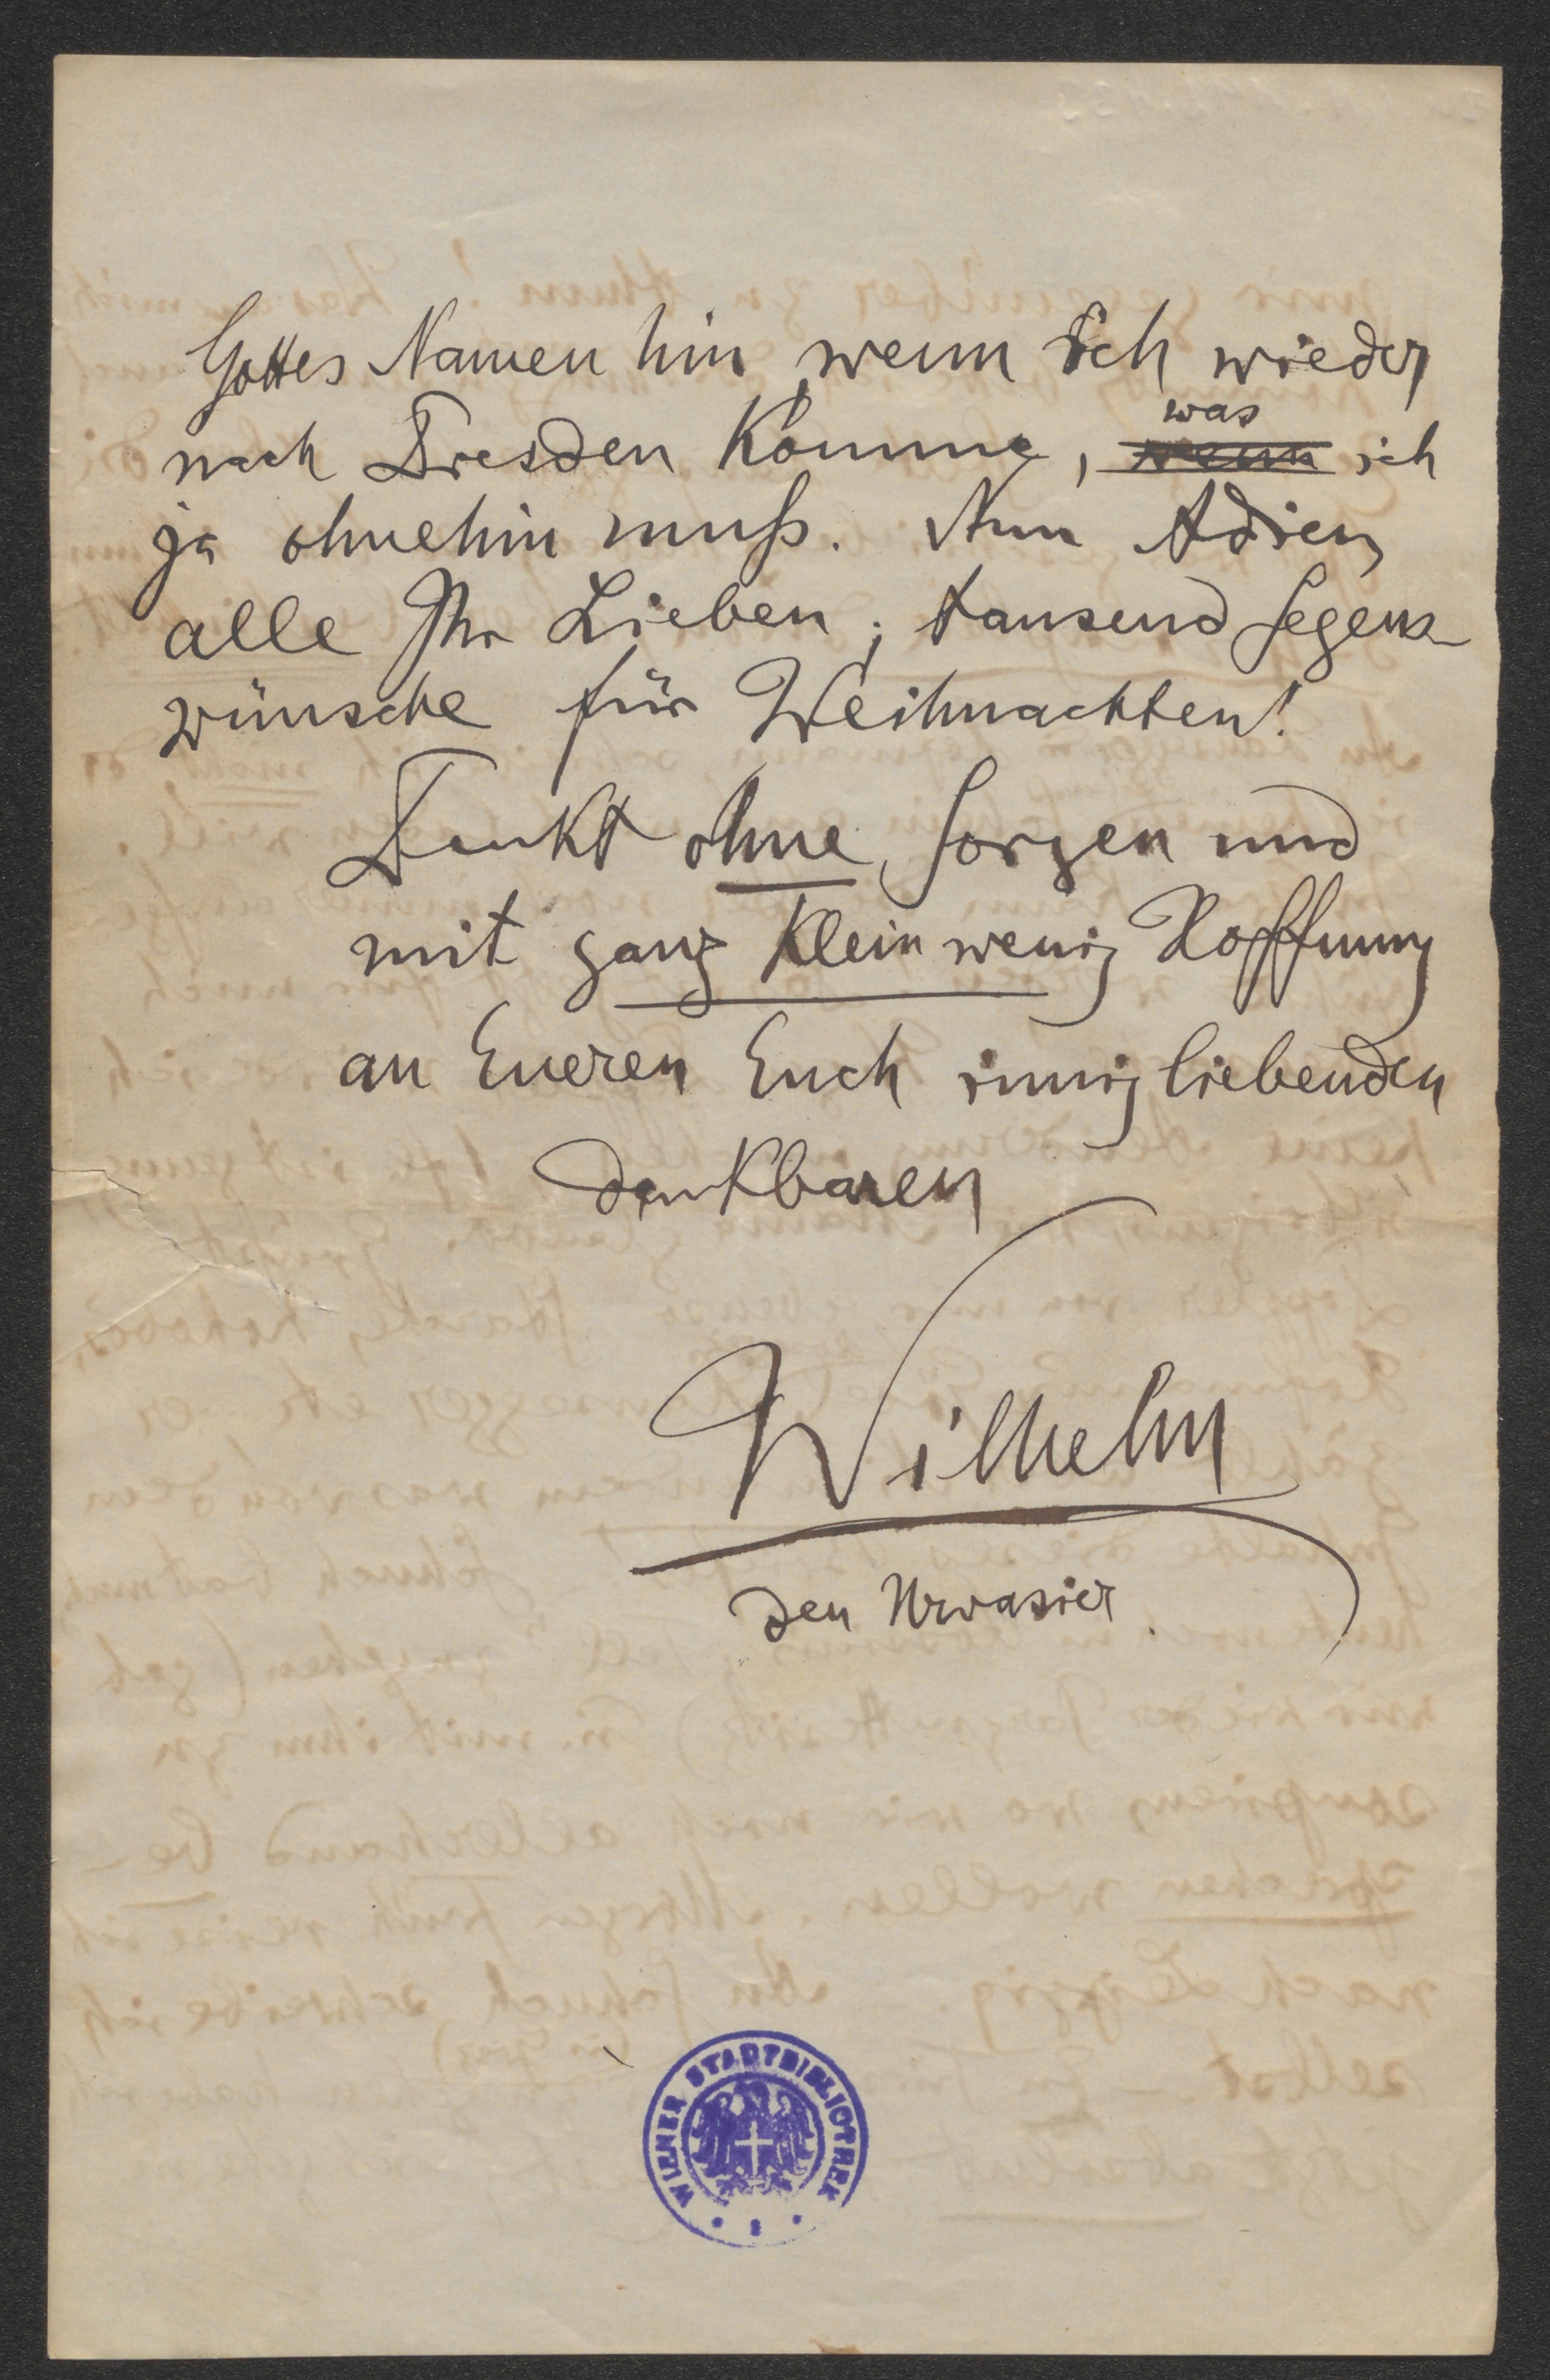 Gottes Namen hin, wenn ich wieder
nach Dresden komme, was ich
ja ohnehin muß. Nun Adieu
alle Ihr Lieben; tausend Segens-
wünsche für Weihnachten!
Denkt ohne Sorgen und
mit ganz klein wenig Hoffnung
an Eueren Euch innig liebenden
dankbaren
Wilhelm
den Urvasier.
WIENER STADTBIBLIOTHEK